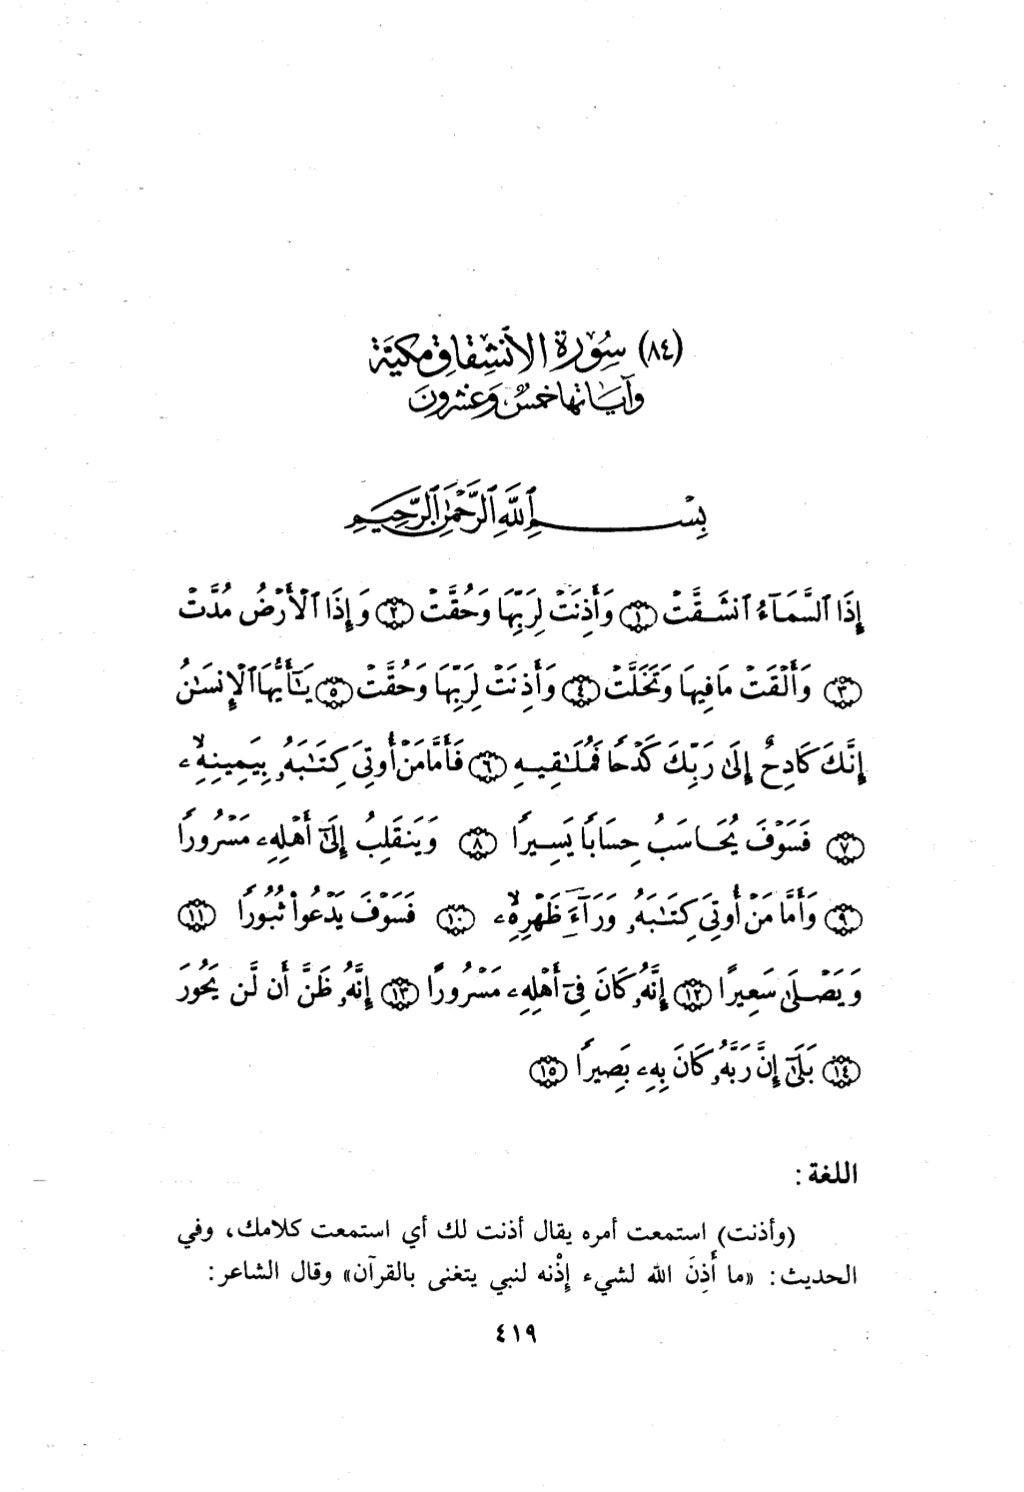 (٨٤) سُورَةُ الانْشِقَاقِ مَكِيَّة
وَآيَاتُهَا خَمْسٌ وَعِشْرُونَ
بِسْمِ ٱللَّهِ ٱلرَّحْمَٰنِ ٱلرَّحِيمِ
إِذَا ٱلسَّمَآءُ ٱنشَقَّتْ ١ وَأَذِنَتْ لِرَبِّهَا وَحُقَّتْ ٢ وَإِذَا ٱلْأَرْضُ مُدَّتْ
٣ وَأَلْقَتْ مَا فِيهَا وَتَخَلَّتْ ٤ وَأَذِنَتْ لِرَبِّهَا وَحُقَّتْ ٥ يَٰٓأَيُّهَا ٱلْإِنسَٰنُ
إِنَّكَ كَادِحٌ إِلَىٰ رَبِّكَ كَدْحًا فَمُلَٰقِيهِ ٦ فَأَمَّا مَنْ أُوتِيَ كِتَٰبَهُۥ بِيَمِينِهِۦ
٧ فَسَوْفَ يُحَاسَبُ حِسَابًا يَسِيرًا ٨ وَيَنقَلِبُ إِلَىٰٓ أَهْلِهِۦ مَسْرُورًا
٩ وَأَمَّا مَنْ أُوتِيَ كِتَٰبَهُۥ وَرَآءَ ظَهْرِهِۦ ١٠ فَسَوْفَ يَدْعُوا۟ ثُبُورًا ١١
وَيَصْلَىٰ سَعِيرًا ١٢ إِنَّهُۥ كَانَ فِيٓ أَهْلِهِۦ مَسْرُورًا ١٣ إِنَّهُۥ ظَنَّ أَن لَّن يَحُورَ
١٤ بَلَىٰٓ إِنَّ رَبَّهُۥ كَانَ بِهِۦ بَصِيرًا ١٥
اللغة :
(وأذنت) استمعت أمره يقال أذنت لك أي استمعت كلامك، وفي
الحديث: «ما أَذِنَ الله لشيء إِذْنه لنبي يتغنى بالقرآن» وقال الشاعر:
٤١٩